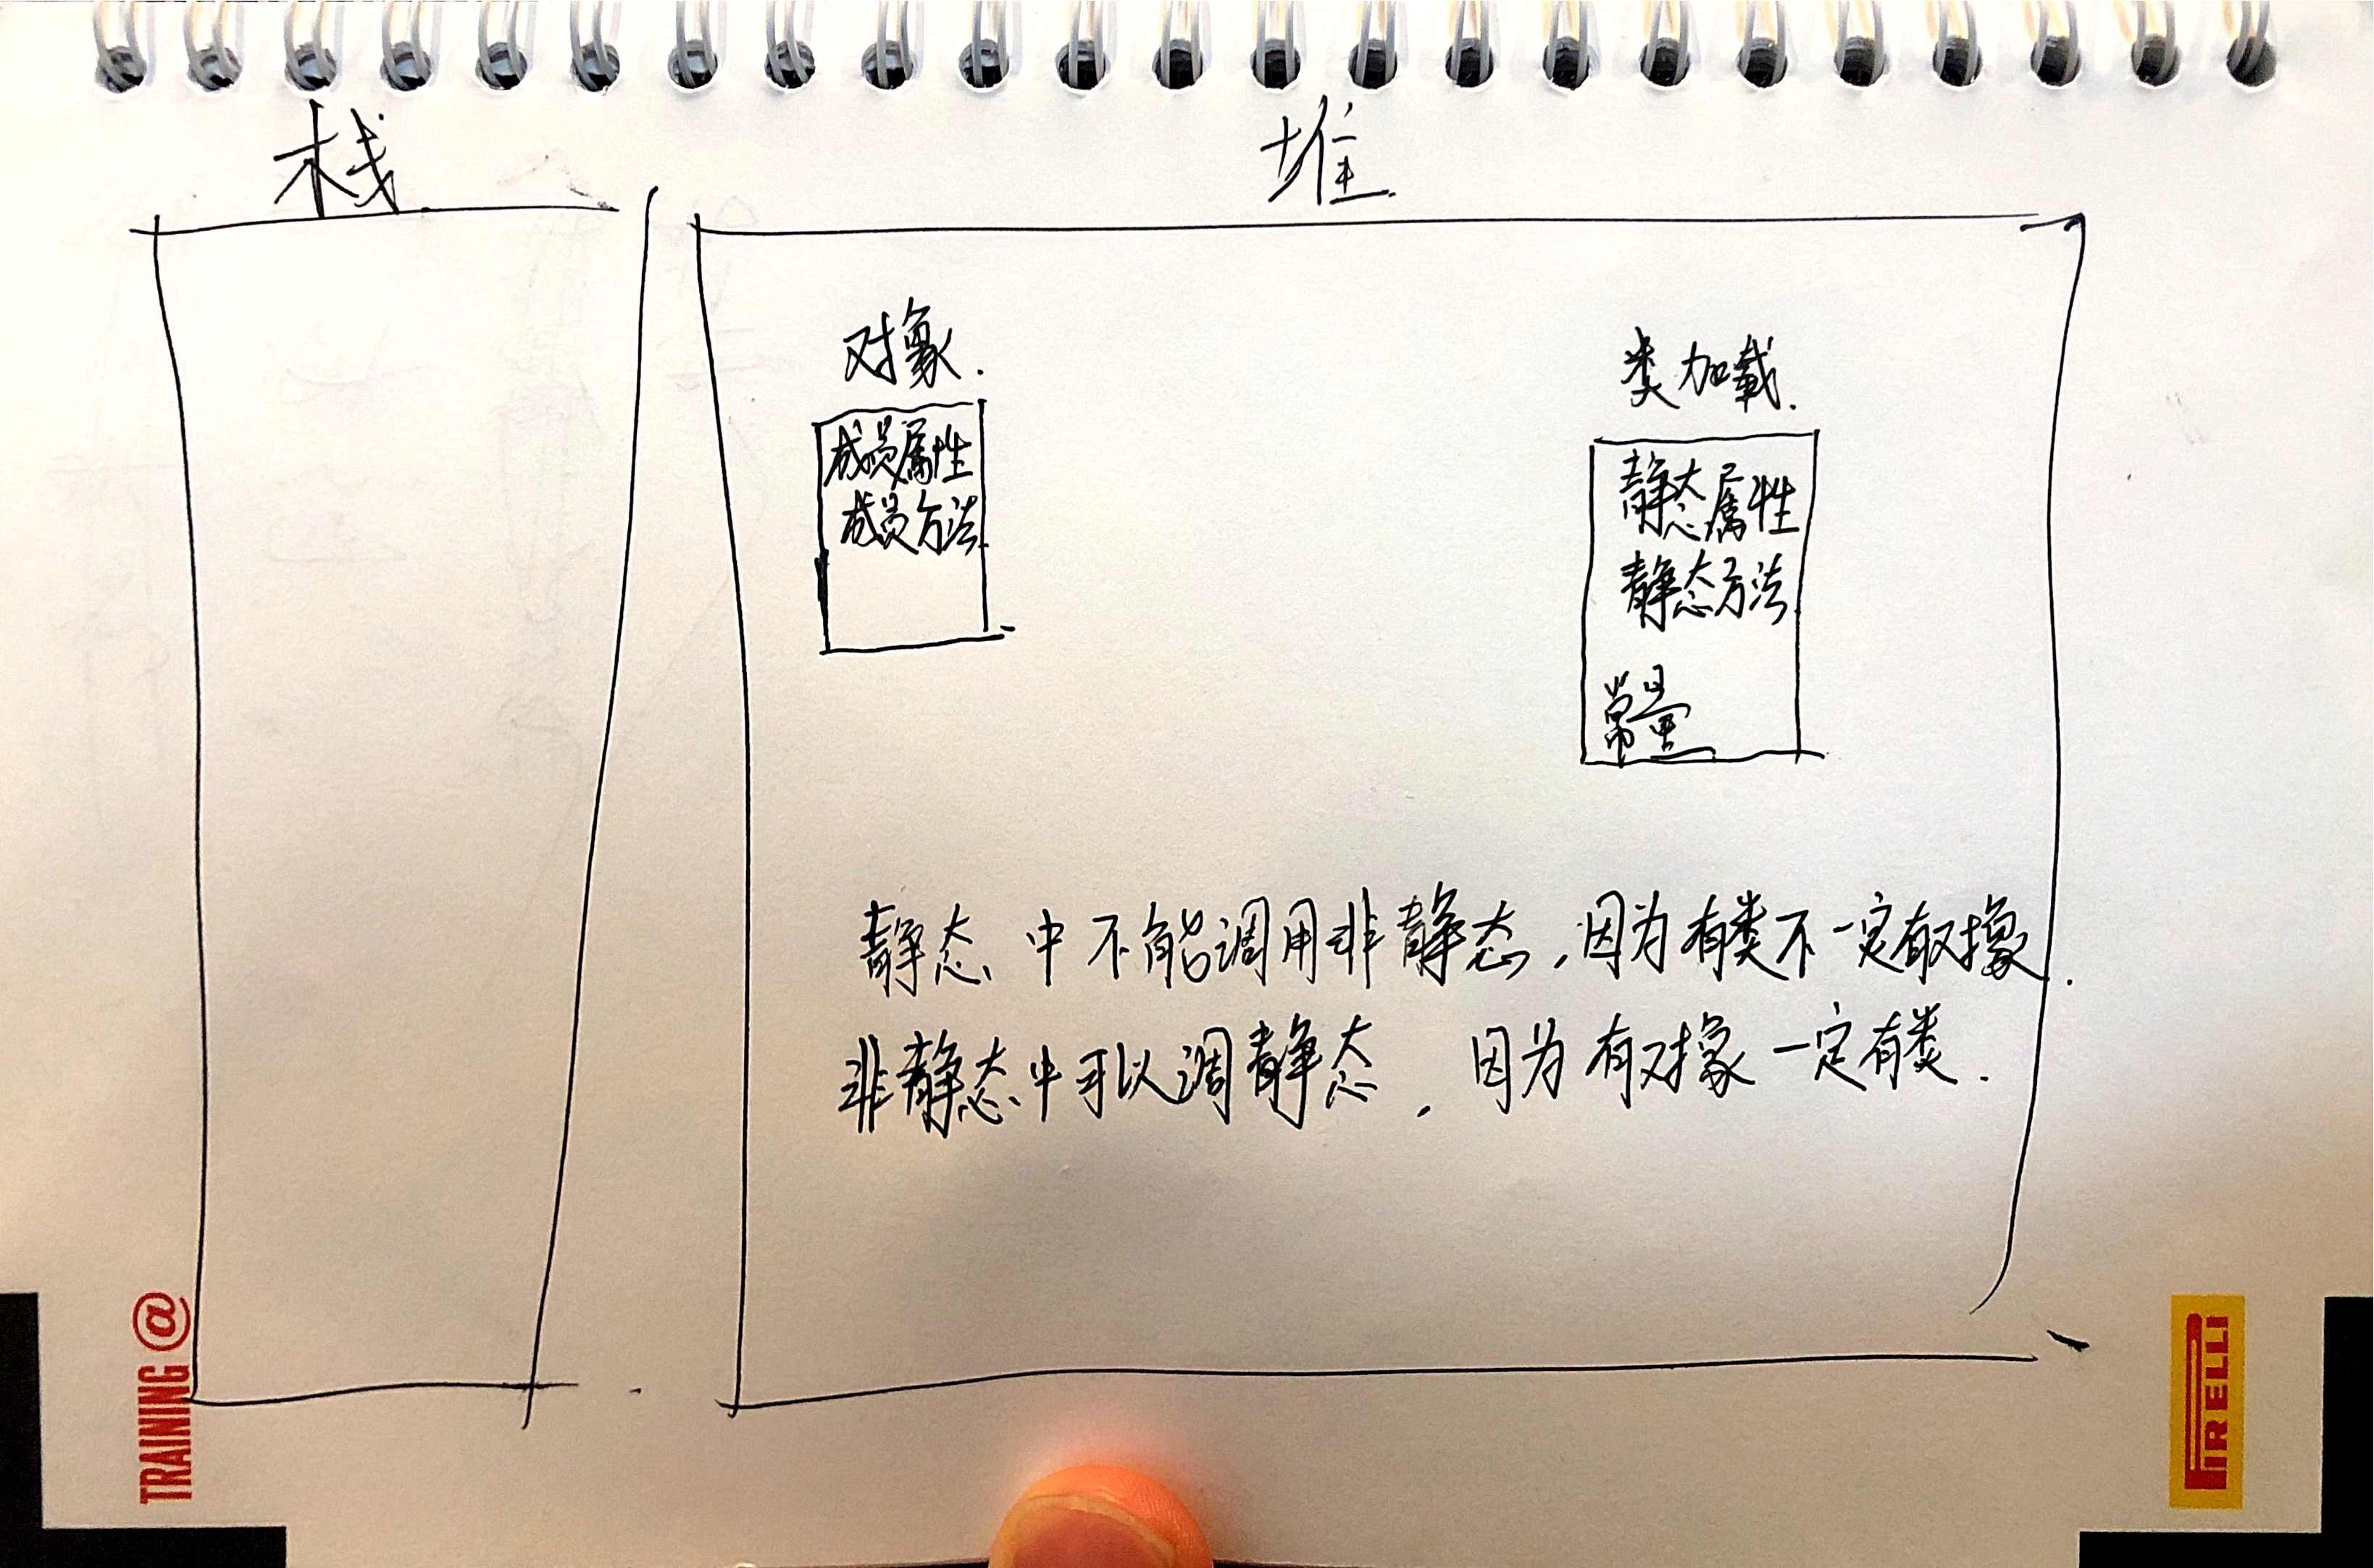 栈
堆
对象.
成员属性
成员方法.
类加载.
静态属性
静态方法
常量
静态中不能调用非静态,因为有类不一定有对象.
非静态中可以调静态,因为有对象一定有类.
TRAINING @
PIRELLI